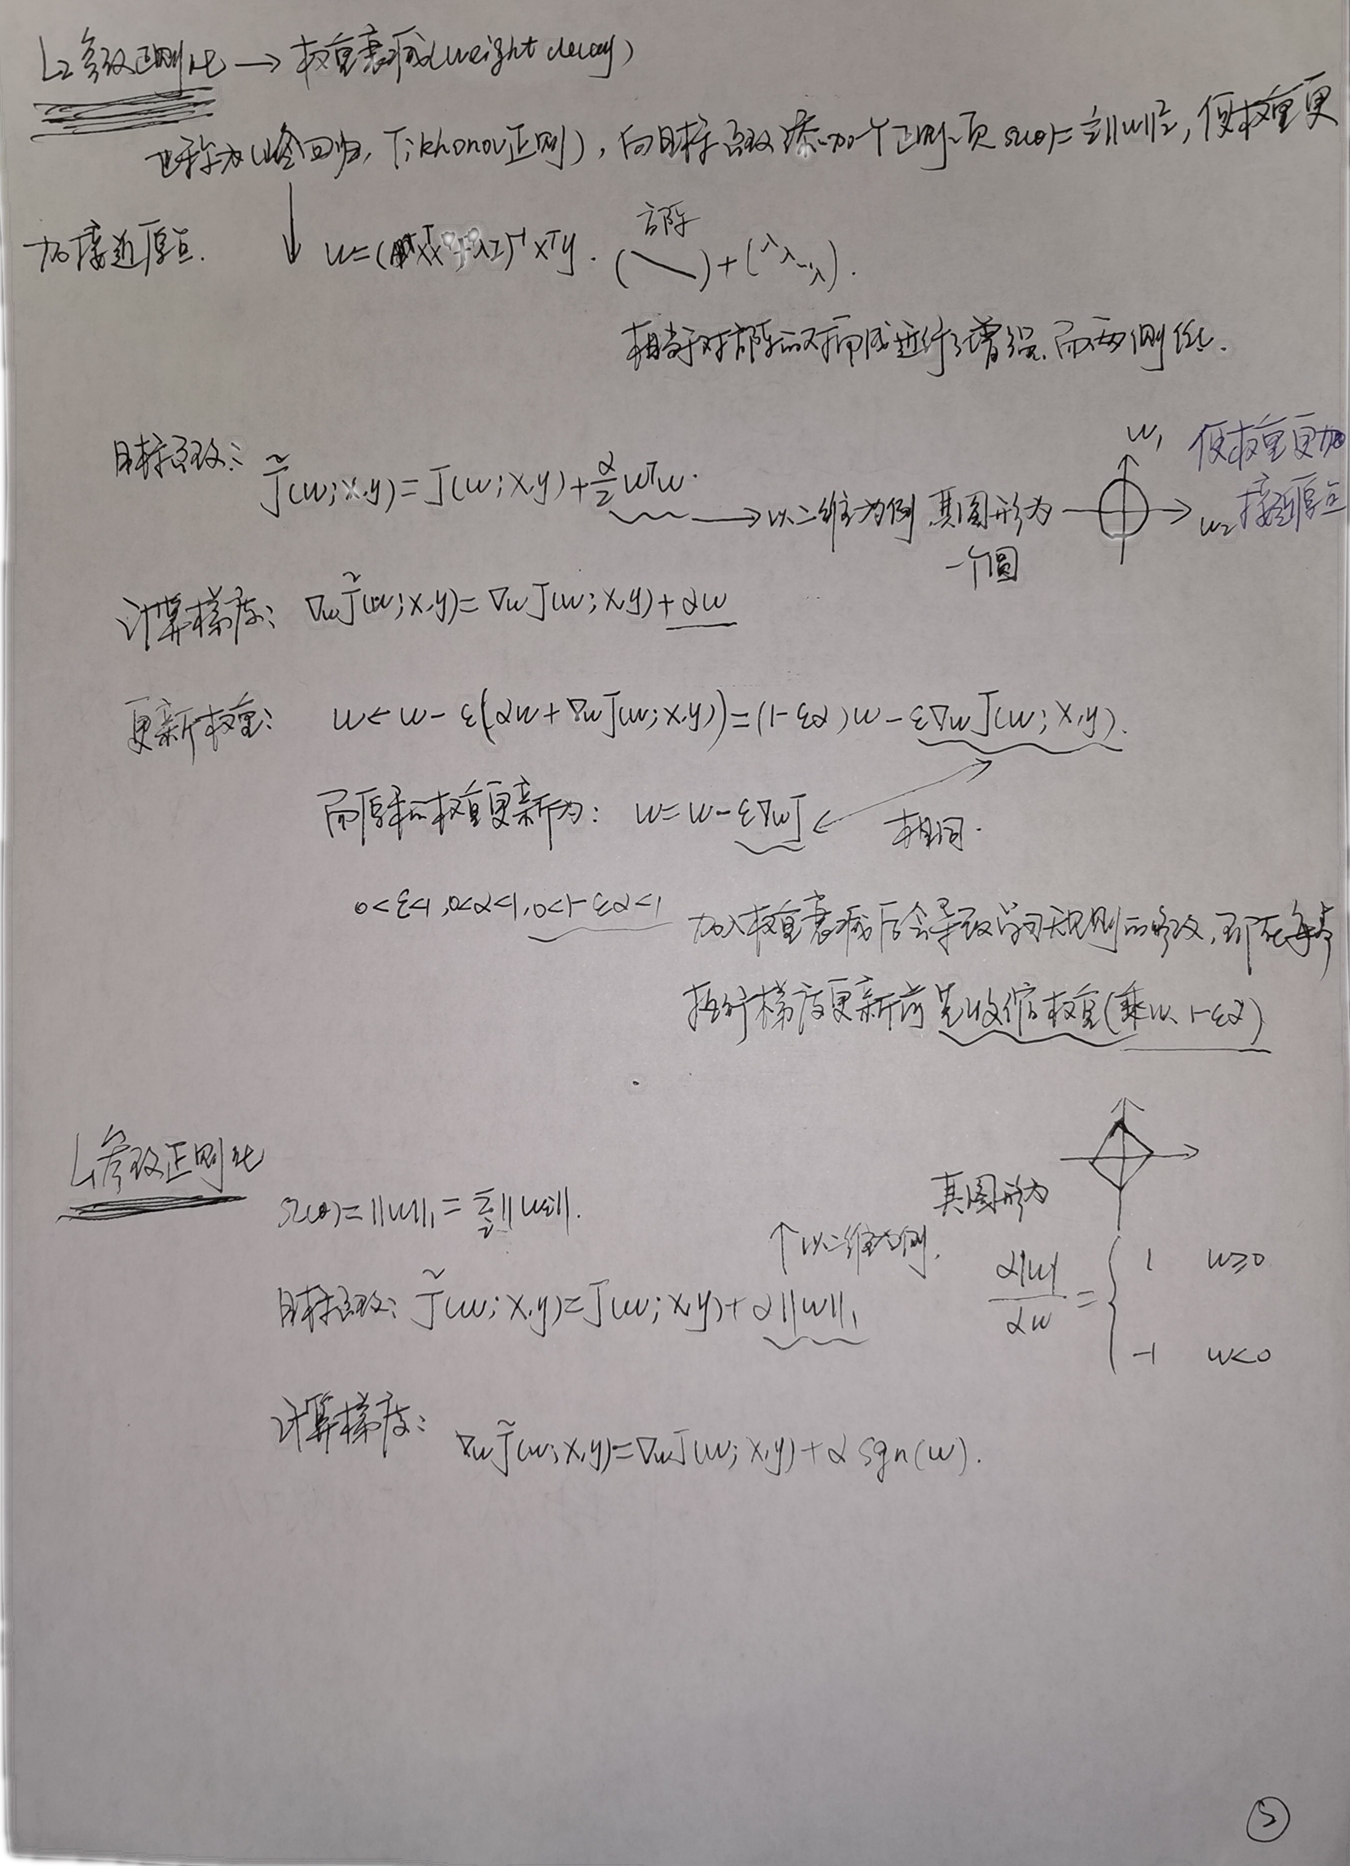 L₂参数正则化 → 权重衰减(weight decay)
也称为(岭回归, Tikhonov正则), 向目标函数添加一个正则项 Ω(θ)=½||w||₂², 使权重更
加接近原点.
w=(XᵀX+λI)⁻¹Xᵀy. 方阵 ( \ )+(λ λ ⋱ λ).
相当于对方阵的对角成进行了增强, 而两侧低.
目标函数: J̃(w;X,y)=J(w;X,y)+α/2 wᵀw. → 以二维为例 其图形为
一个圆
w₁ w₂
使权重更加
接近原点
计算梯度: ∇wJ̃(w;X,y)=∇wJ(w;X,y)+αw
更新权重: w←w-ε(αw+∇wJ(w;X,y))=(1-εα)w-ε∇wJ(w;X,y).
而原来的权重更新为: w=w-ε∇wJ 相同.
0<ε<1,0<α<1,0<1-εα<1
加入权重衰减后会导致学习规则的修改, 即在每步
执行梯度更新前先收缩权重(乘以 1-εα)
L₁参数正则化
Ω(θ)=||w||₁=∑ᵢ||wᵢ||.
其图形为
↑以二维为例.
目标函数: J̃(w;X,y)=J(w;X,y)+α||w||₁
α|w|/αw = { 1 w≥0
-1 w<0
计算梯度: ∇wJ̃(w;X,y)=∇wJ(w;X,y)+α sgn(w).